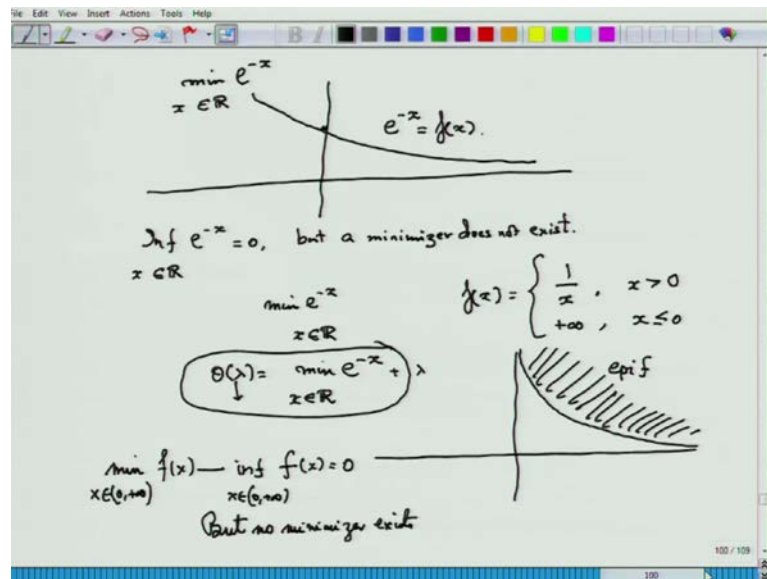 File Edit View Insert Actions Tools Help
B I
min e^{-x}
x ∈ ℝ
e^{-x} = f(x).
Inf e^{-x} = 0, but a minimizer does not exist.
x ∈ ℝ
min e^{-x}
x ∈ ℝ
f(x) = { 1/x , x > 0
+∞ , x ≤ 0
θ(λ) = min e^{-x} + λ
x ∈ ℝ
epi f
min f(x) — inf f(x) = 0
x∈(0,+∞) x∈(0,+∞)
But no minimizer exists
100 / 109
100